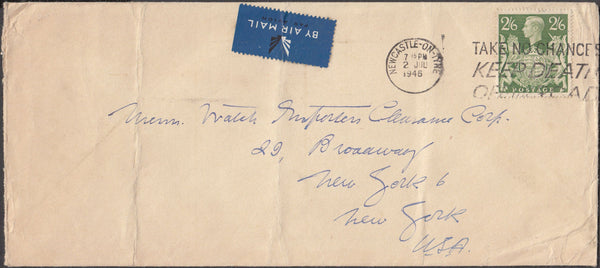 BY AIR MAIL
PAR AVION
NEWCASTLE-ON-TYNE
7 15 PM
2 JUL
1946
2/6 2/6
POSTAGE
TAKE NO CHANCES
KEEP DEATH
OFF ROAD
Messrs. Watch Importers Clearance Corp.
29, Broadway
New York 6
New York
U.S.A.